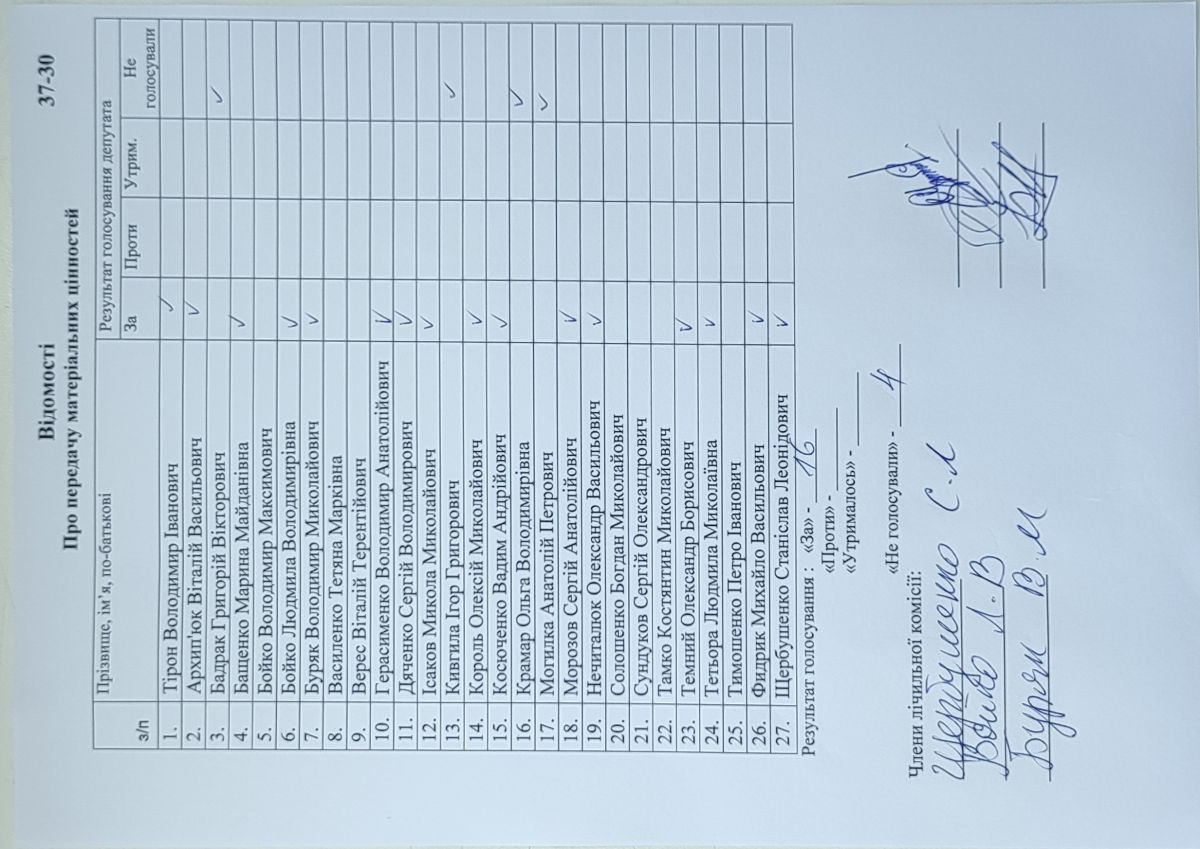 Відомості 37-30
Про передачу матеріальних цінностей
з/п Прізвище, ім’я, по-батькові Результат голосування депутата
За Проти Утрим. Не голосували
1. Тірон Володимир Іванович ✓
2. Архип'юк Віталій Васильович ✓
3. Бадрак Григорій Вікторович ✓
4. Бащенко Марина Майданівна ✓
5. Бойко Володимир Максимович
6. Бойко Людмила Володимирівна ✓
7. Буряк Володимир Миколайович ✓
8. Василенко Тетяна Марківна
9. Верес Віталій Терентійович
10. Герасименко Володимир Анатолійович ✓
11. Дяченко Сергій Володимирович ✓
12. Ісаков Микола Миколайович ✓
13. Кивгила Ігор Григорович ✓
14. Король Олексій Миколайович ✓
15. Косюченко Вадим Андрійович ✓
16. Крамар Ольга Володимирівна ✓
17. Могилка Анатолій Петрович ✓
18. Морозов Сергій Анатолійович ✓
19. Нечиталюк Олександр Васильович ✓
20. Солошенко Богдан Миколайович
21. Сундуков Сергій Олександрович
22. Тамко Костянтин Миколайович
23. Темний Олександр Борисович ✓
24. Тетьора Людмила Миколаївна ✓
25. Тимошенко Петро Іванович
26. Фидрик Михайло Васильович ✓
27. Щербушенко Станіслав Леонідович ✓
Результат голосування : «За» - 16
«Проти» -
«Утрималось» -
«Не голосували» - 4
Члени лічильної комісії:
Щербушенко С.Л
Бойко Л.В
Буряк В.М